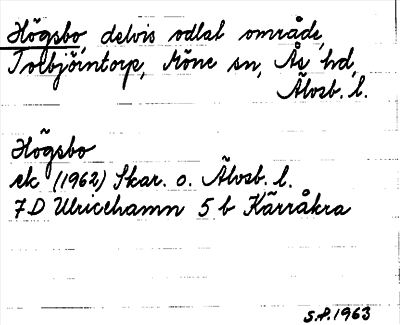 Högsbo, delvis odlat område,
Torbjörntorp, Möne sn, Ås hd,
Älvsb. l.
Högsbo
ek (1962) Skar. o. Älvsb. l.
7D Ulricehamn 5 b Kärråkra
S.P. 1963